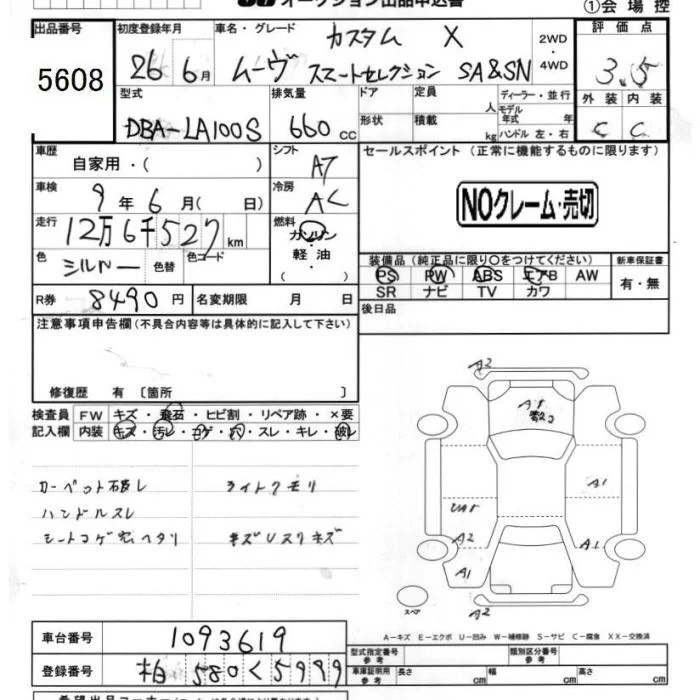 オークション出品申込書
①会場控
出品番号
5608
初度登録年月
26年6月
車名・グレード
カスタム X
ムーヴ スマートセレクション SA&SN
2WD・4WD
評価点
3.5
外装 内装
C C
型式
DBA-LA100S
排気量
660cc
ドア
形状
定員
人
積載
kg
ディーラー・並行
モデル年式 年
ハンドル 左・右
車歴
自家用・( )
シフト
AT
車検
9年6月( 日)
冷房
AC
走行
12万6千527km
燃料
ガソリン・軽油・( )
色
シルバー
色替
色コード
R券
8490円
名変期限 月 日
セールスポイント (正常に機能するものに限ります)
NOクレーム・売切
装備品(純正品に限り○をつけてください)
PS PW ABS エアB AW
SR ナビ TV カワ
新車保証書
有・無
後日品
注意事項申告欄(不具合内容等は具体的に記入して下さい)
修復歴 有 〔箇所 〕
検査員記入欄
FW キズ・飛石・ヒビ割・リペア跡・×要
内装 キズ・汚レ・コゲ・穴・スレ・キレ・破レ
カーペット破レ
ライトクモリ
ハンドルスレ
シートコゲ穴ヘタリ
キズUスリキズ
A2
A1
A1
A2
A1
A1
A2
スペア
A-キズ E-エクボ U-凹み W-補修跡 S-サビ C-腐食 XX-交換済
車台番号
1093619
登録番号
柏 580 く 5999
型式指定番号
参考
類別区分番号
参考
車庫証明用
参考
長さ cm
幅 cm
高さ cm